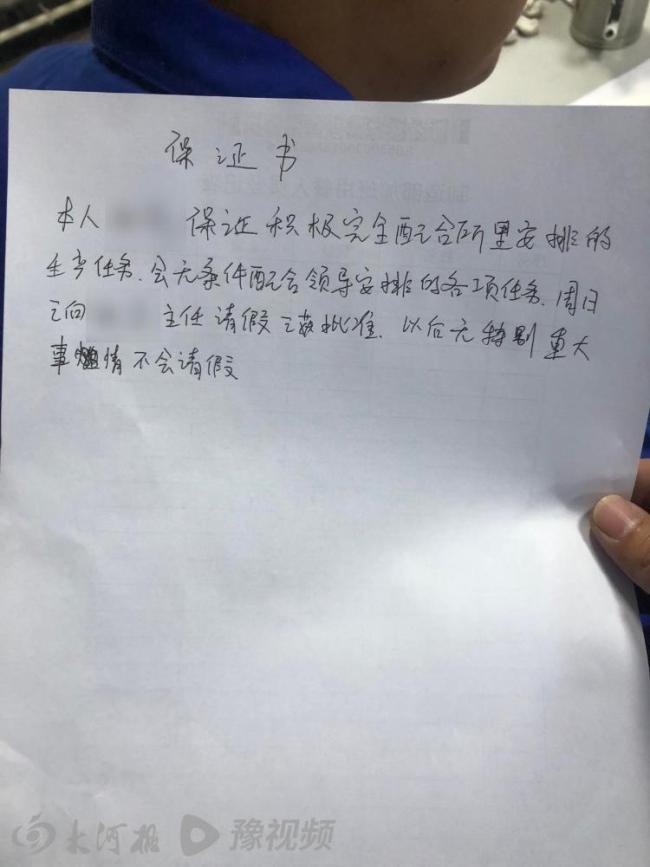 保证书
本人 保证积极完全配合所里安排的
生产任务.会无条件配合领导安排的各项任务.周日
向 主任请假 批准.以后无特别重大
事情不会请假
大河报 豫视频